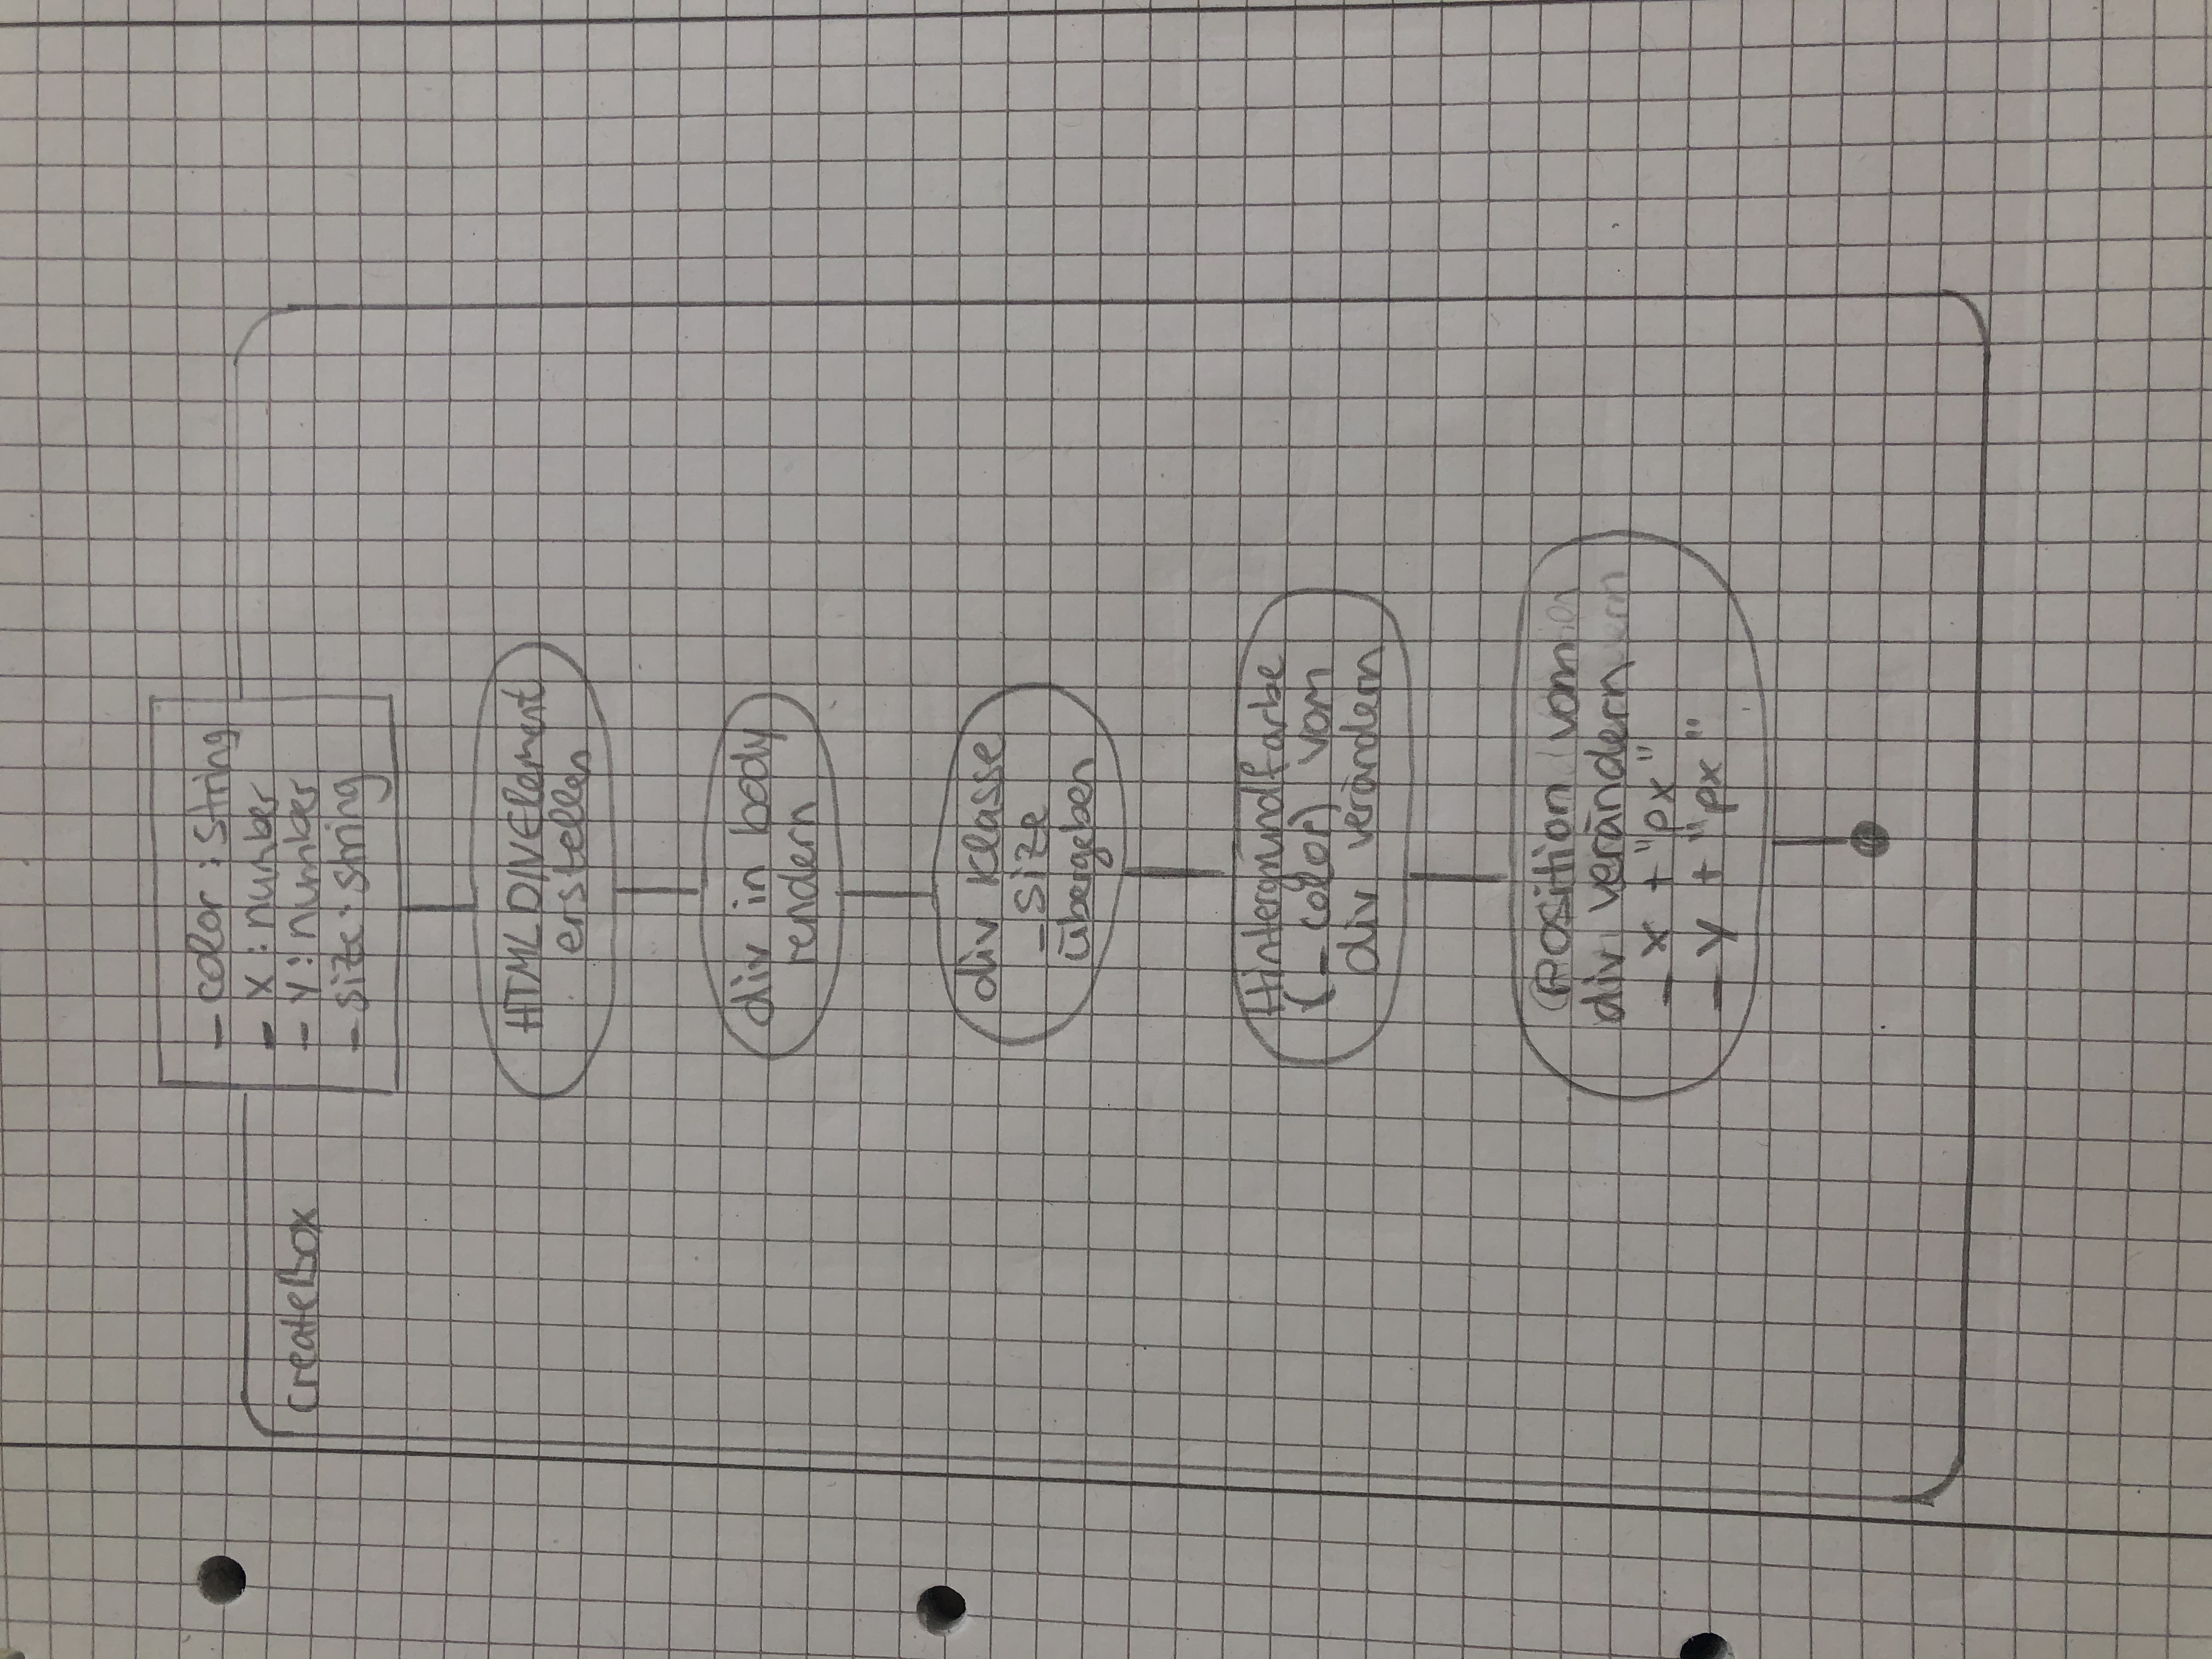 _color : string
_x : number
_y : number
_size : string
createBox
HTMLDIVElement
erstellen
div in body
rendern
div Klasse
_size
übergeben
Hintergrundfarbe
(_color) vom
div verändern
Position vom
div verändern
_x + "px"
_y + "px"